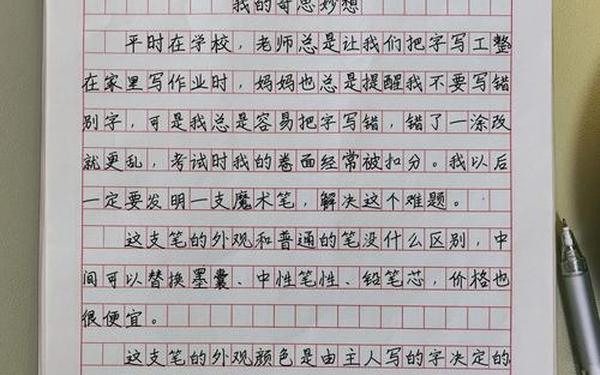 我的奇思妙想
平时在学校，老师总是让我们把字写工整
在家里写作业时，妈妈也总是提醒我不要写错
别字，可是我总是容易把字写错，错了一涂改
就更乱，考试时我的卷面经常被扣分。我以后
一定要发明一支魔术笔，解决这个难题。
这支笔的外观和普通的笔没什么区别，中
间可以替换墨囊、中性笔性、铅笔芯，价格也
很便宜。
这支笔的外观颜色是由主人写的字决定的